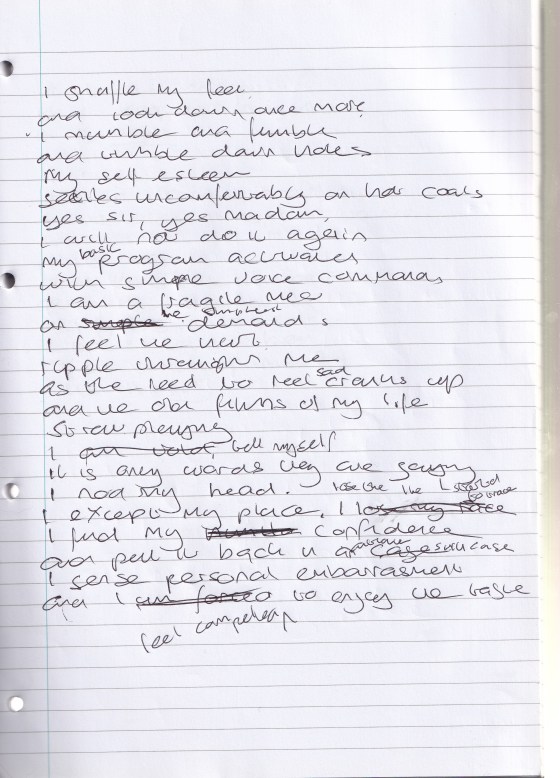 I shuffle my feet
and look down once more
I mumble and fumble
and tumble down holes
My self esteem
settles uncomfortably on hot coals
yes sir, yes madam,
I will not do it again
My basic program activates
with simple voice commands
I am a fragile
on simple the simplest demands
I feel the hurt
ripple through me
as the need to feel sad cranks up
and the old films of my life
start playing
I am told, tell myself
it is only words they are saying
I nod my head.
I except my place, I lose my face
I find my confidence
and put it back in a cage suitcase
I sense personal embarrasment
and I am forced to enjoy the taste
feel compelled